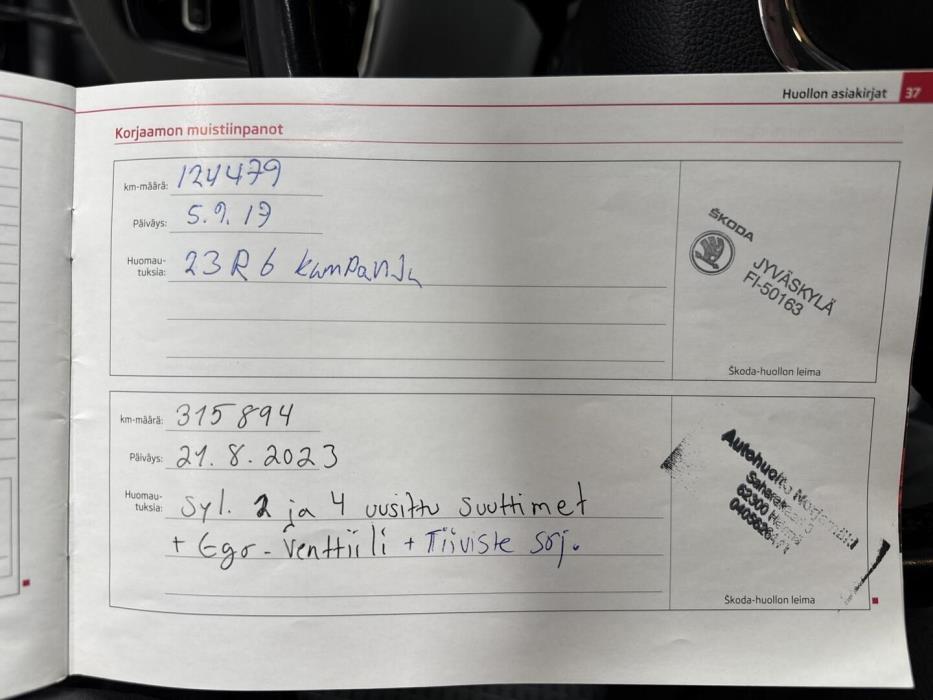 Huollon asiakirjat 37
Korjaamon muistiinpanot
km-määrä: 124479
Päiväys: 5.9.19
Huomau-
tuksia: 23R6 kampanja
ŠKODA
JYVÄSKYLÄ
FI-50163
Škoda-huollon leima
km-määrä: 315894
Päiväys: 21.8.2023
Huomau-
tuksia: Syl. 2 ja 4 uusittu suuttimet
+ Egr-venttiili + Tiiviste srj.
Autohuolto
62300
Škoda-huollon leima